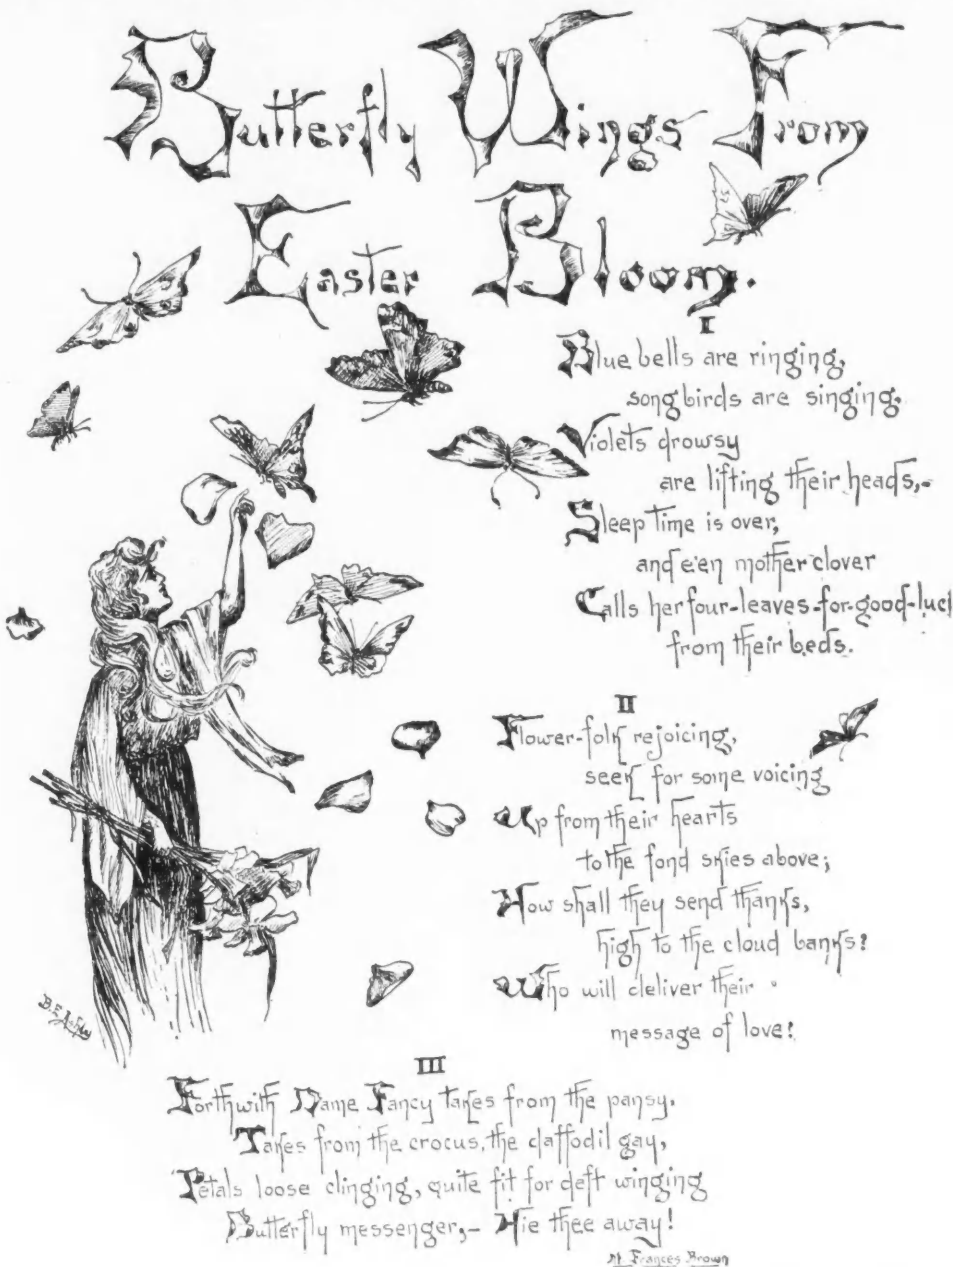 Butterfly Wings From
Easter Bloom.
I
Blue bells are ringing,
song birds are singing.
Violets drowsy
are lifting their heads,-
Sleep time is over,
and e'en mother clover
Calls her four-leaves-for-good-luc
from their beds.
II
Flower-folk rejoicing,
seek for some voicing
Up from their hearts
to the fond skies above;
How shall they send thanks,
high to the cloud banks?
Who will deliver their
message of love?
III
Forthwith Dame Fancy takes from the pansy,
Takes from the crocus, the daffodil gay,
Petals loose clinging, quite fit for deft winging
Butterfly messenger,- Hie thee away!
M. Frances Brown